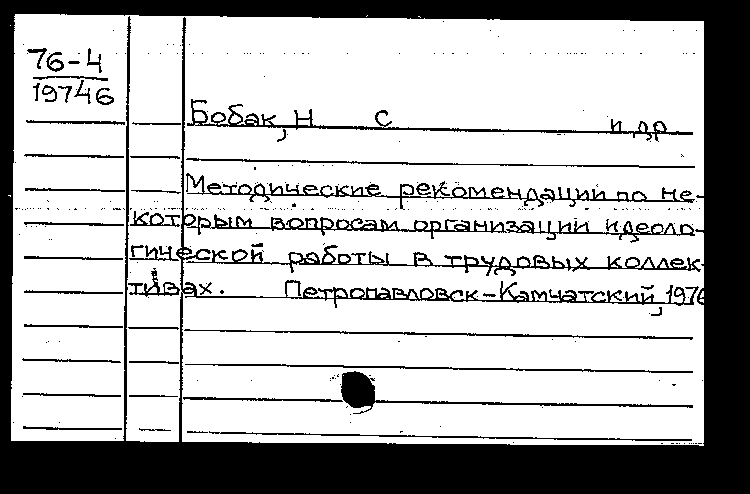 76-4
19746
Бобак, Н С и др
Методические рекомендации по не-
которым вопросам организации идеоло-
гической работы в трудовых коллек-
тивах. Петропавловск-Камчатский, 1976